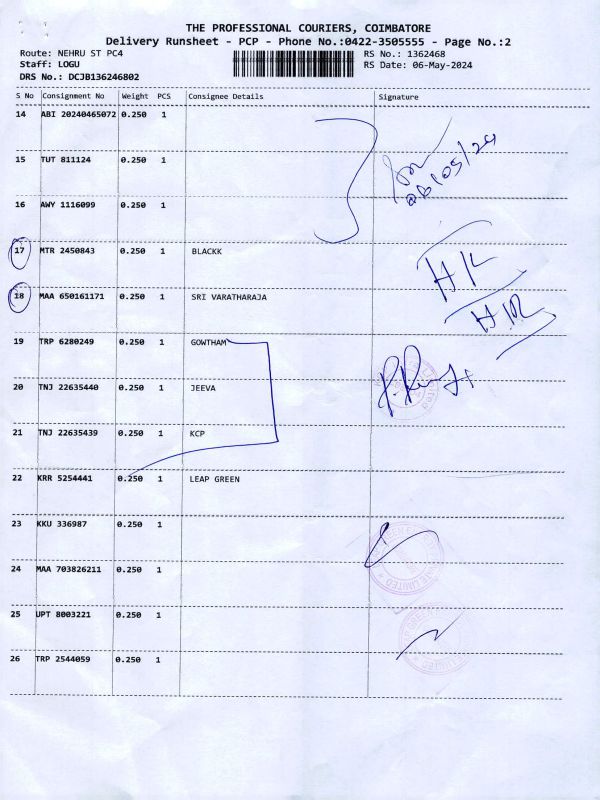 THE PROFESSIONAL COURIERS, COIMBATORE
Delivery Runsheet - PCP - Phone No.:0422-3505555 - Page No.:2
Route: NEHRU ST PC4 RS No.: 1362468
Staff: LOGU RS Date: 06-May-2024
DRS No.: DCJB136246802
S No Consignment No Weight PCS Consignee Details Signature
14 ABI 20240465072 0.250 1
15 TUT 811124 0.250 1
06/05/24
16 AWY 1116099 0.250 1
17 MTR 2450843 0.250 1 BLACKK
18 MAA 650161171 0.250 1 SRI VARATHARAJA
19 TRP 6280249 0.250 1 GOWTHAM
20 TNJ 22635440 0.250 1 JEEVA
21 TNJ 22635439 0.250 1 KCP
22 KRR 5254441 0.250 1 LEAP GREEN
23 KKU 336987 0.250 1
24 MAA 703826211 0.250 1
25 UPT 8003221 0.250 1
26 TRP 2544059 0.250 1